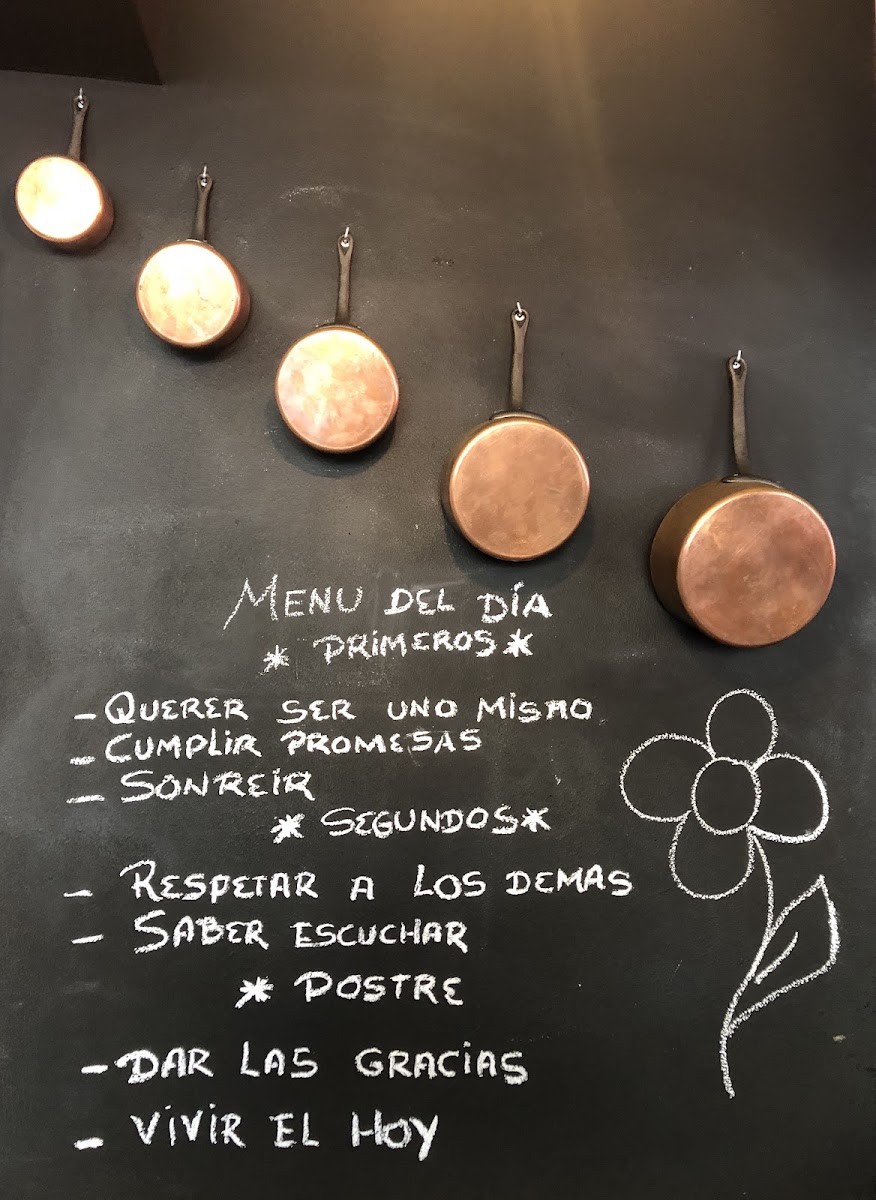 MENU DEL DÍA
* PRIMEROS *
- QUERER SER UNO MISMO
- CUMPLIR PROMESAS
- SONREIR
* SEGUNDOS *
- RESPETAR A LOS DEMAS
- SABER ESCUCHAR
* POSTRE
- DAR LAS GRACIAS
- VIVIR EL HOY